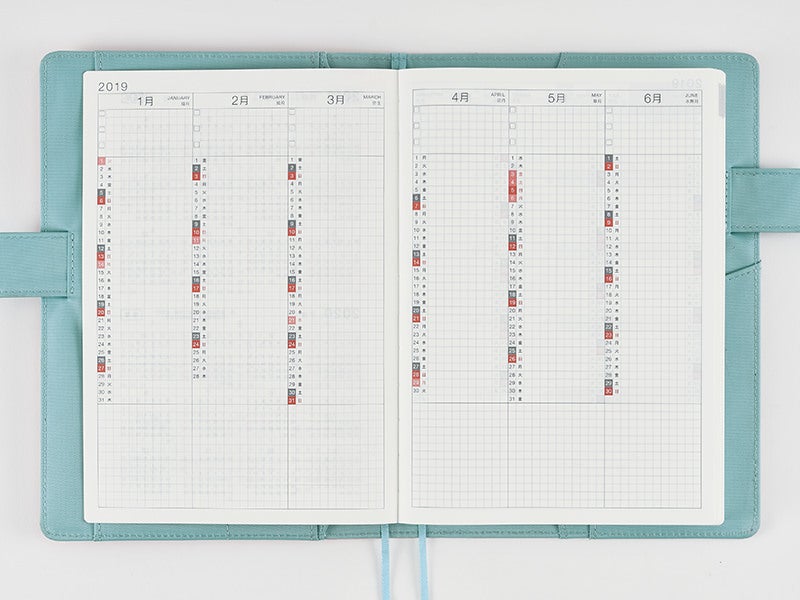 2019
1月 JANUARY
睦月
1 火
2 水
3 木
4 金
5 土
6 日
7 月
8 火
9 水
10 木
11 金
12 土
13 日
14 月
15 火
16 水
17 木
18 金
19 土
20 日
21 月
22 火
23 水
24 木
25 金
26 土
27 日
28 月
29 火
30 水
31 木
2月 FEBRUARY
如月
1 金
2 土
3 日
4 月
5 火
6 水
7 木
8 金
9 土
10 日
11 月
12 火
13 水
14 木
15 金
16 土
17 日
18 月
19 火
20 水
21 木
22 金
23 土
24 日
25 月
26 火
27 水
28 木
3月 MARCH
弥生
1 金
2 土
3 日
4 月
5 火
6 水
7 木
8 金
9 土
10 日
11 月
12 火
13 水
14 木
15 金
16 土
17 日
18 月
19 火
20 水
21 木
22 金
23 土
24 日
25 月
26 火
27 水
28 木
29 金
30 土
31 日
4月 APRIL
卯月
1 月
2 火
3 水
4 木
5 金
6 土
7 日
8 月
9 火
10 水
11 木
12 金
13 土
14 日
15 月
16 火
17 水
18 木
19 金
20 土
21 日
22 月
23 火
24 水
25 木
26 金
27 土
28 日
29 月
30 火
5月 MAY
皐月
1 水
2 木
3 金
4 土
5 日
6 月
7 火
8 水
9 木
10 金
11 土
12 日
13 月
14 火
15 水
16 木
17 金
18 土
19 日
20 月
21 火
22 水
23 木
24 金
25 土
26 日
27 月
28 火
29 水
30 木
31 金
6月 JUNE
水無月
1 土
2 日
3 月
4 火
5 水
6 木
7 金
8 土
9 日
10 月
11 火
12 水
13 木
14 金
15 土
16 日
17 月
18 火
19 水
20 木
21 金
22 土
23 日
24 月
25 火
26 水
27 木
28 金
29 土
30 日